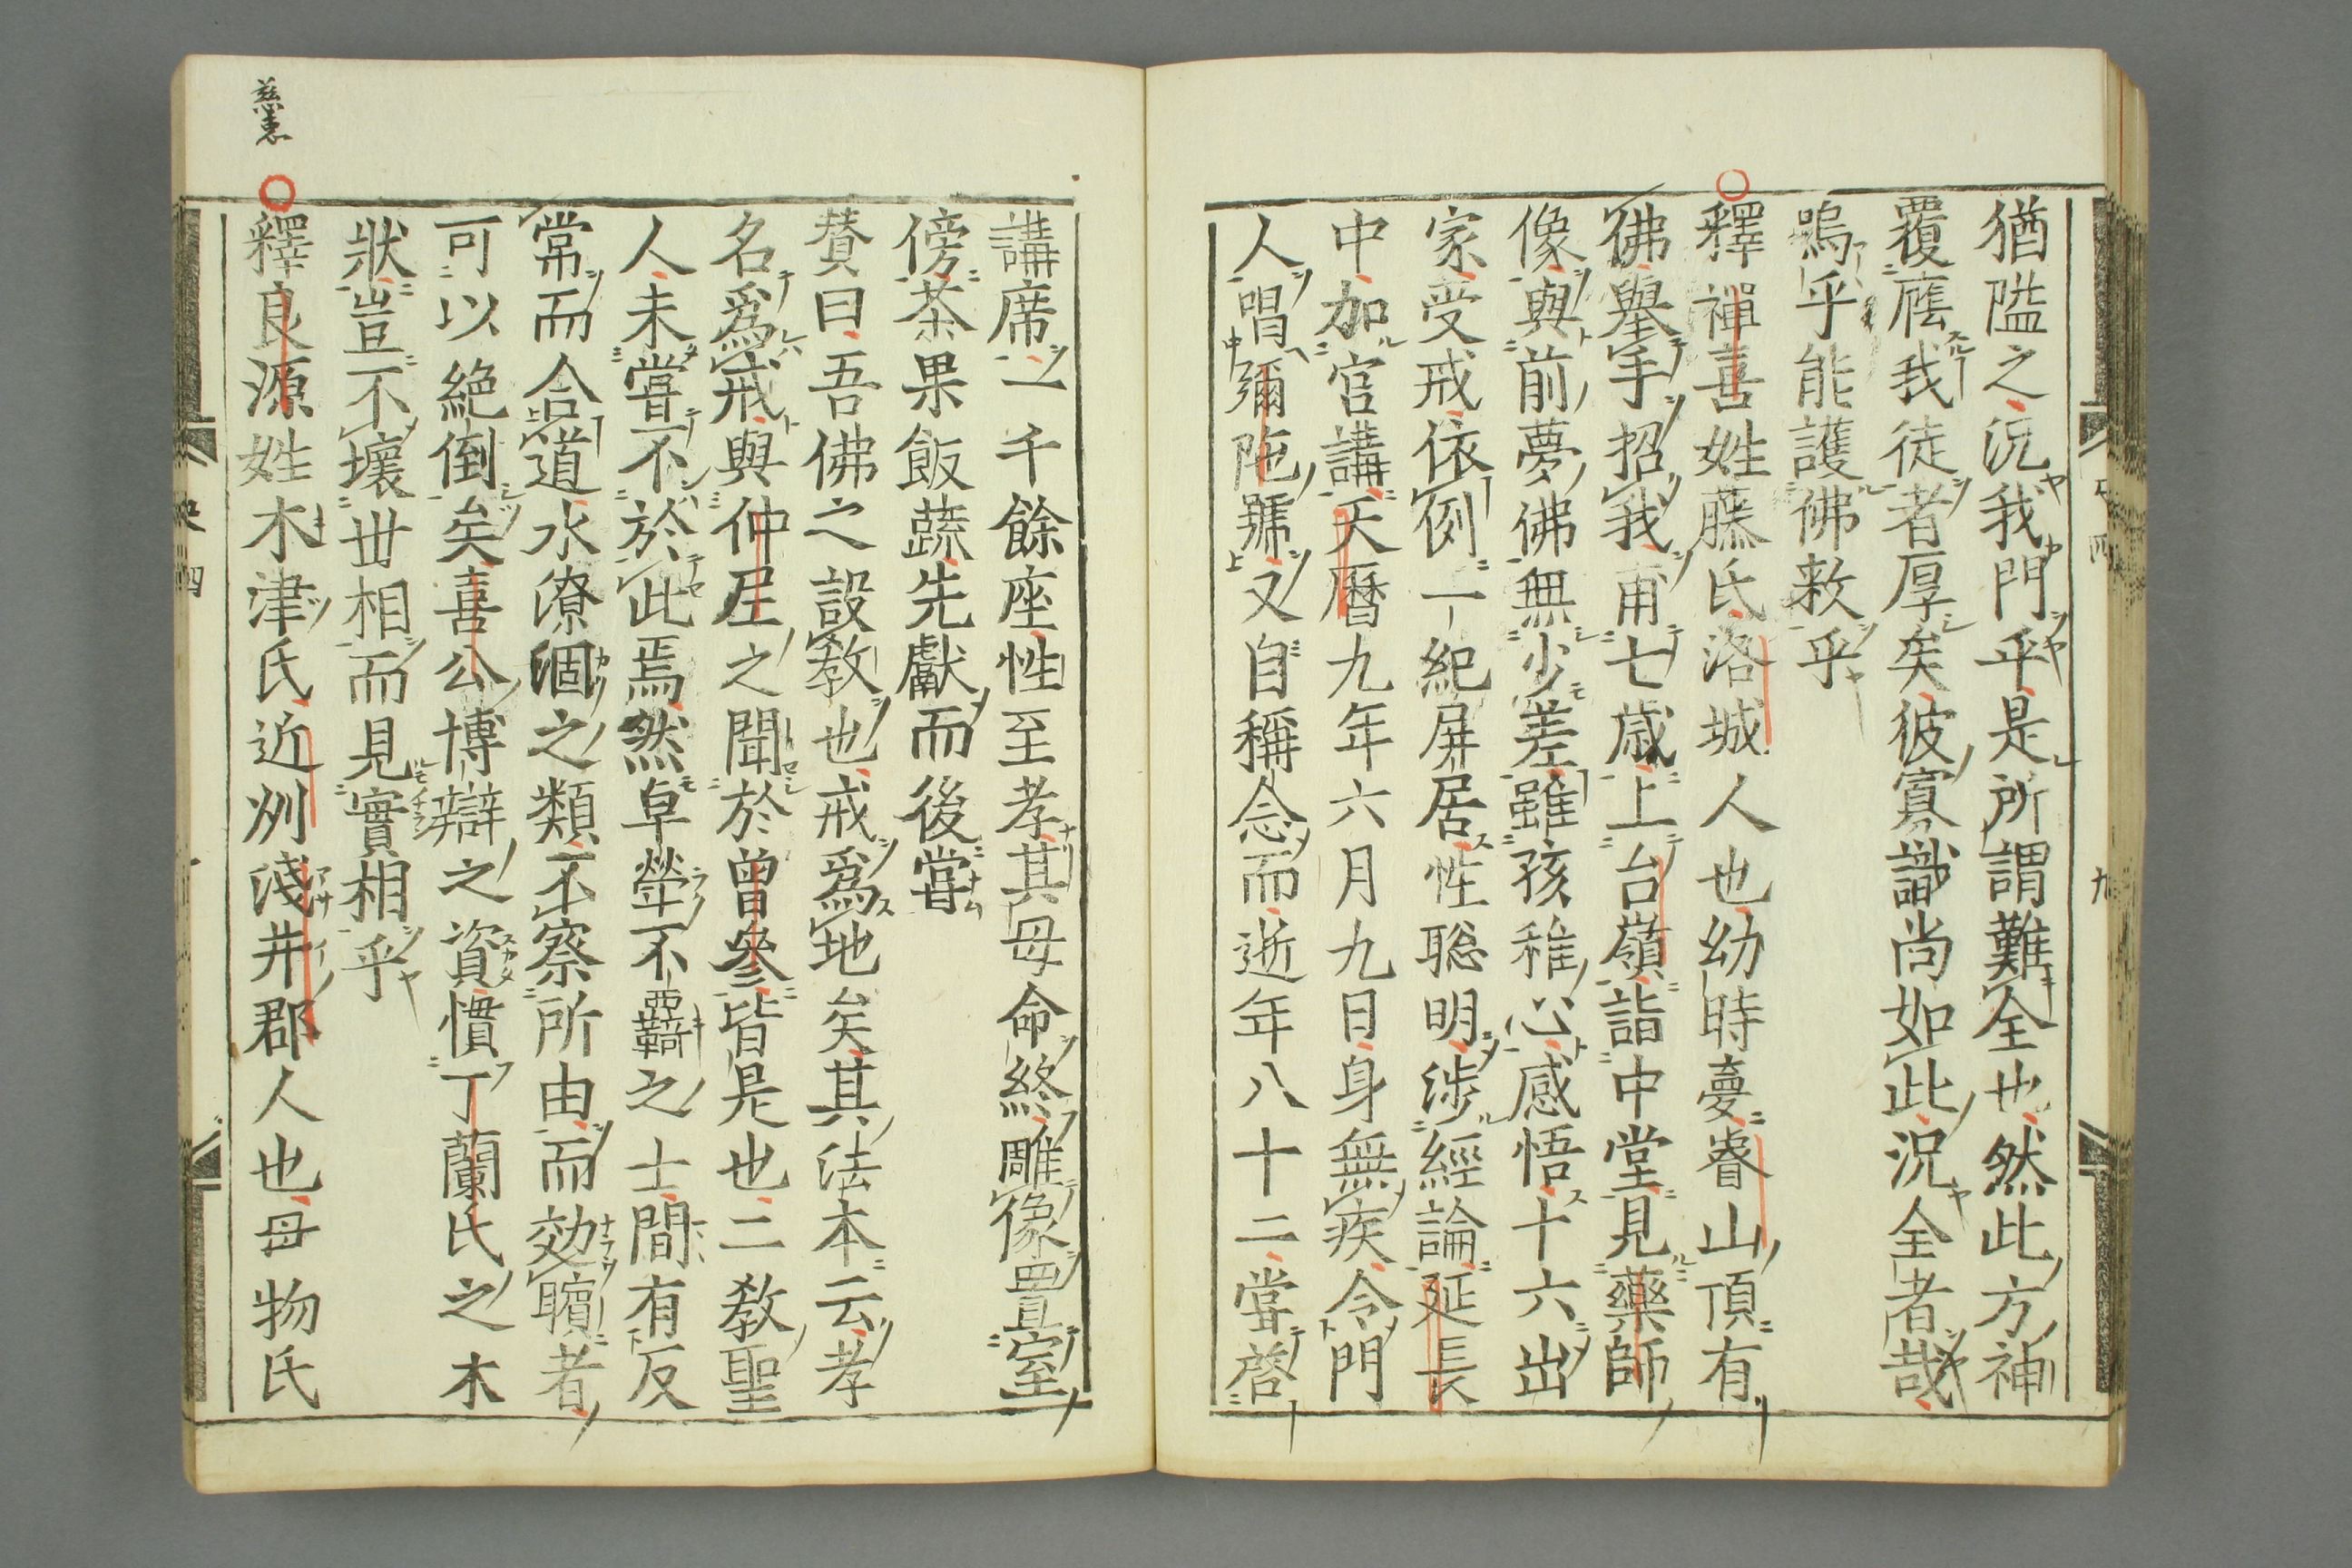 猶隘之況我門乎是所謂難全也然此方神
覆廕我徒者厚矣彼寡識尚如此況全者哉
嗚乎能護佛敎乎
釋禪喜姓藤氏洛城人也幼時夢睿山頂有
佛擧手招我甫七歲上台嶺詣中堂見藥師
像與前夢佛無少差雖孩稚心感悟十六出
家受戒依例一紀屏居性聡明涉經論延長
中加官講天曆九年六月九日身無疾令門
人唱彌陁號又自稱念而逝年八十二當啓
講席一千餘座性至孝其母命終雕像置室
傍茶果飯蔬先獻而後嘗
賛曰吾佛之設教也戒爲地矣其法本云孝
名爲戒與仲尼之聞於曾參皆是也二教聖
人未嘗不於此焉然卓犖不羈之士間有反
常而合道水潦涸之類不察所由而効瞶者
可以絶倒矣喜公博辯之資慣丁蘭氏之木
狀豈不壞世相而見實相乎
慈惠
釋良源姓木津氏近州淺井郡人也母物氏
史四
九